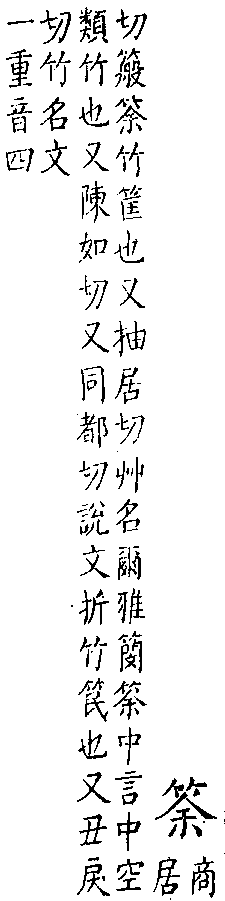 筡商
居
切𥴧筡竹筐也又抽居切艸名爾雅簢筡中言中空
類竹也又陳如切又同都切說文折竹笢也又丑戾
切竹名文
一重音四